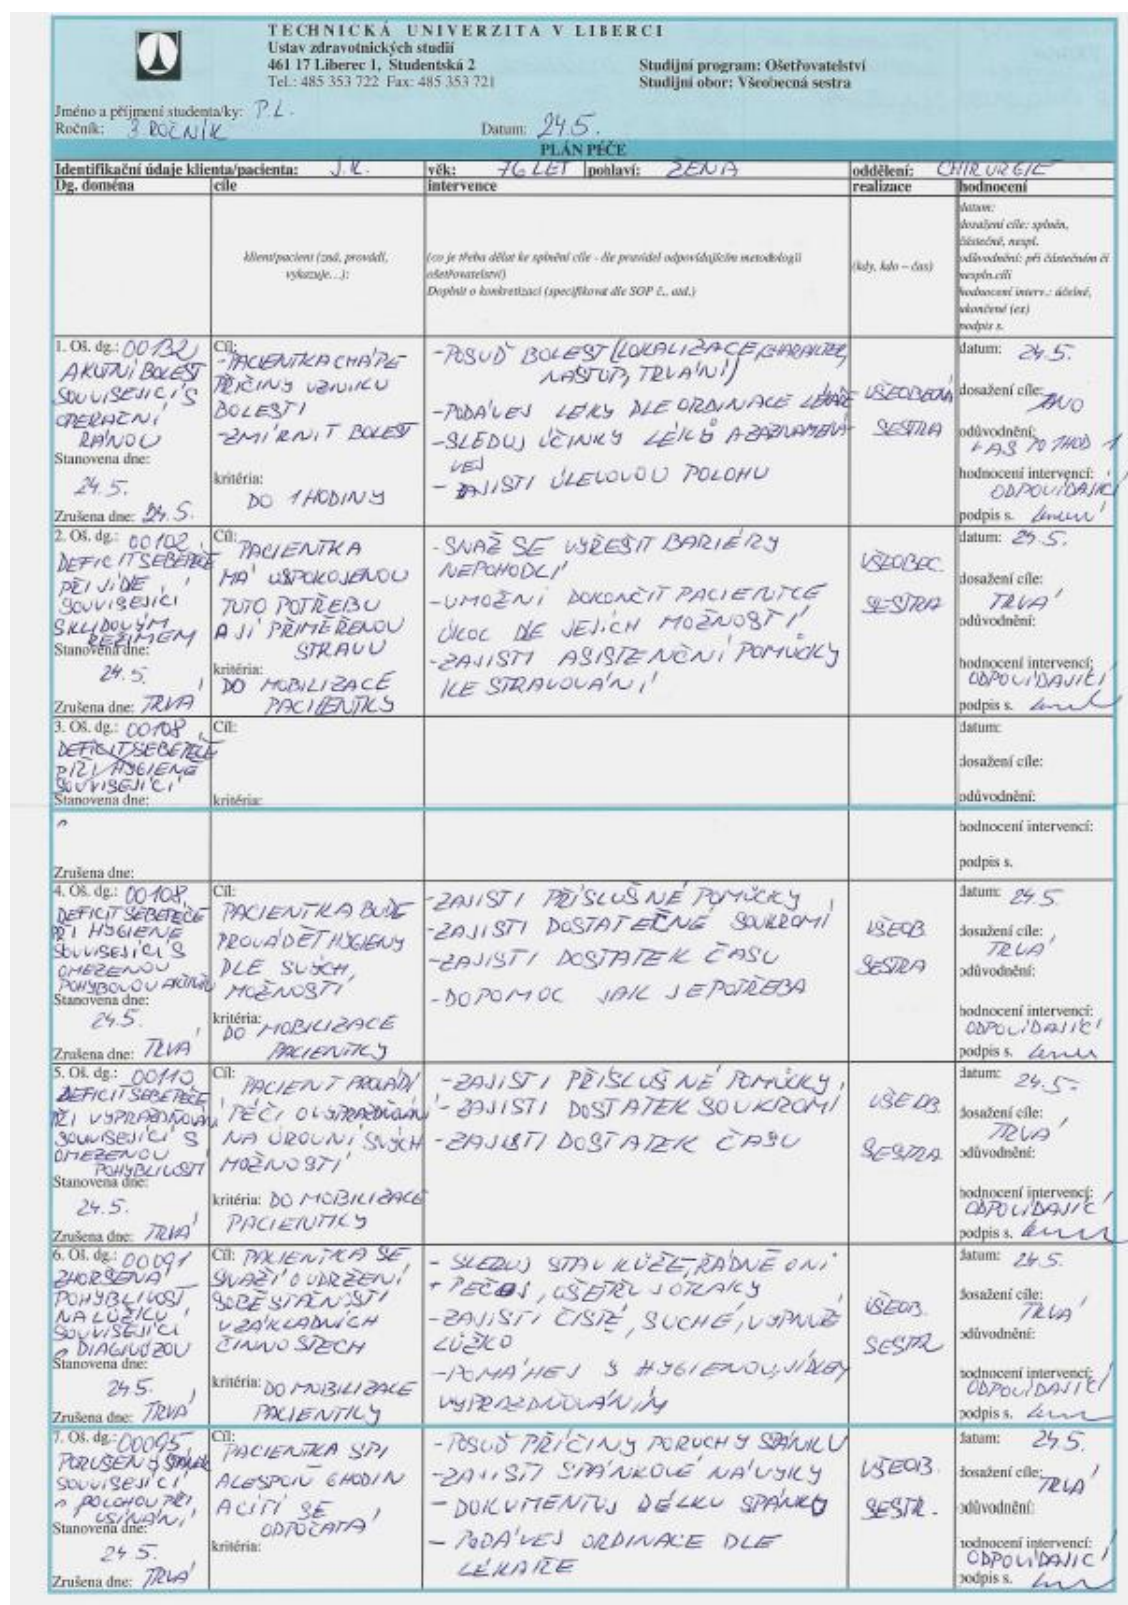 TECHNICKÁ UNIVERZITA V LIBERCI
Ústav zdravotnických studií
461 17 Liberec 1, Studentská 2
Studijní program: Ošetřovatelství
Tel.: 485 353 722 Fax: 485 353 721
Studijní obor: Všeobecná sestra
Jméno a příjmení studenta/ky: P.L.
Ročník: 3 ROČNÍK Datum: 24.5.
PLÁN PÉČE
Identifikační údaje klienta/pacienta: J.K. věk: 76 LET pohlaví: ŽENA oddělení: CHIRURGIE
Dg. doména cíle intervence realizace hodnocení
klient/pacient (zná, provádí,
vykazuje…):
(co je třeba dělat ke splnění cíle - dle pravidel odpovídajícím metodologii
ošetřovatelství)
Doplnit o konkretizaci (specifikovat dle SOP č., atd.)
(kdy, kdo – čas)
datum:
dosažení cíle: splněn,
částečně, nespl.
odůvodnění: při částečném či
nespln.cíli
hodnocení interv.: účelné,
ukončené (ex)
podpis s.
1. Oš. dg.: 00132
AKUTNÍ BOLEST
SOUVISEJÍCÍ S
OPERAČNÍ
RANOU
Stanovena dne:
24.5.
Zrušena dne: 24.5.
Cíl:
-PACIENTKA CHÁPE
PŘÍČINY VZNIKU
BOLESTI
-ZMÍRNIT BOLEST
kritéria:
DO 1 HODINY
-POSUĎ BOLEST (LOKALIZACE, CHARAKTER,
NÁSTUP, TRVÁNÍ)
-PODÁVEJ LÉKY DLE ORDINACE LÉKAŘE
-SLEDUJ ÚČINKY LÉKŮ A ZAZNAMENÁ-
VEJ
- ZAJISTI ÚLEVOVOU POLOHU
VŠEOBECNÁ
SESTRA
datum: 24.5.
dosažení cíle:
ANO
odůvodnění:
hodnocení intervencí:
ODPOVÍDAJÍCÍ
podpis s.
2. Oš. dg.: 00102
DEFICIT SEBEPÉČE
PŘI JÍDLE
SOUVISEJÍCÍ
S KLIDOVÝM
REŽIMEM
Stanovena dne:
24.5.
Zrušena dne: TRVÁ
Cíl:
PACIENTKA
MÁ USPOKOJENOU
TUTO POTŘEBU
A JÍ PŘIMĚŘENOU
STRAVU
kritéria:
DO MOBILIZACE
PACIENTKY
-SNAŽ SE VYŘEŠIT BARIÉRY
NEPOHODLÍ
-UMOŽNI DOKONČIT PACIENTCE
ÚKOL DLE JEJÍCH MOŽNOSTÍ
-ZAJISTI ASISTENČNÍ POMŮCKY
KE STRAVOVÁNÍ
VŠEOBEC.
SESTRA
datum: 24.5.
dosažení cíle:
TRVÁ
odůvodnění:
hodnocení intervencí:
ODPOVÍDAJÍCÍ
podpis s.
3. Oš. dg.: 00108
DEFICIT SEBEPÉČE
PŘI HYGIENĚ
SOUVISEJÍCÍ
Stanovena dne:
Zrušena dne:
Cíl:
kritéria:
datum:
dosažení cíle:
odůvodnění:
hodnocení intervencí:
podpis s.
4. Oš. dg.: 00108
DEFICIT SEBEPÉČE
PŘI HYGIENĚ
SOUVISEJÍCÍ S
OMEZENOU
POHYBOVOU AKTIVITOU
Stanovena dne:
24.5.
Zrušena dne: TRVÁ
Cíl:
PACIENTKA BUDE
PROVÁDĚT HYGIENY
DLE SVÝCH
MOŽNOSTÍ
kritéria:
DO MOBILIZACE
PACIENTKY
-ZAJISTI PŘÍSLUŠNÉ POMŮCKY
-ZAJISTI DOSTATEČNÉ SOUKROMÍ
-ZAJISTI DOSTATEK ČASU
-DOPOMOC JAK JE POTŘEBA
VŠEOB.
SESTRA
datum: 24.5.
dosažení cíle:
TRVÁ
odůvodnění:
hodnocení intervencí:
ODPOVÍDAJÍCÍ
podpis s.
5. Oš. dg.: 00110
DEFICIT SEBEPÉČE
PŘI VYPRAZDŇOVÁNÍ
SOUVISEJÍCÍ S
OMEZENOU
POHYBLIVOSTÍ
Stanovena dne:
24.5.
Zrušena dne: TRVÁ
Cíl:
PACIENT PROVÁDÍ
PÉČI O VYPRAZDŇOVÁNÍ
NA ÚROVNÍ SVÝCH
MOŽNOSTÍ
kritéria: DO MOBILIZACE
PACIENTKY
-ZAJISTI PŘÍSLUŠNÉ POMŮCKY,
-ZAJISTI DOSTATEK SOUKROMÍ
-ZAJISTI DOSTATEK ČASU
VŠEOB.
SESTRA
datum: 24.5.
dosažení cíle:
TRVÁ
odůvodnění:
hodnocení intervencí:
ODPOVÍDAJÍC
podpis s.
6. Oš. dg.: 00091
ZHORŠENÁ
POHYBLIVOST
NA LŮŽKU
SOUVISEJÍCÍ
S DIAGNÓZOU
Stanovena dne:
24.5.
Zrušena dne: TRVÁ
Cíl: PACIENTKA SE
SNAŽÍ O UDRŽENÍ
SOBĚSTAČNOSTI
V ZÁKLADNÍCH
ČINNOSTECH
kritéria: DO MOBILIZACE
PACIENTKY
- SLEDUJ STAV KŮŽE, ŘÁDNĚ O NI
PEČUJ,
-ZAJISTI ČISTÉ, SUCHÉ, VYPNUTÉ
LŮŽKO
-POMÁHEJ S HYGIENOU, JÍDLEM
VYPRAZDŇOVÁNÍM
VŠEOB.
SESTR.
datum: 24.5.
dosažení cíle:
TRVÁ
odůvodnění:
hodnocení intervencí:
ODPOVÍDAJÍCÍ
podpis s.
7. Oš. dg.: 00095
PORUŠENÝ SPÁNEK
SOUVISEJÍCÍ
S POLOHOU PŘI
USÍNÁNÍ
Stanovena dne:
24.5.
Zrušena dne: TRVÁ
Cíl:
PACIENTKA SPÍ
ALESPOŇ 6 HODIN
A CÍTÍ SE
ODPOČATÁ
kritéria:
-POSUĎ PŘÍČINY PORUCHY SPÁNKU
-ZAJISTI SPÁNKOVÉ NÁVYKY
- DOKUMENTUJ DÉLKU SPÁNKU
- PODÁVEJ ORDINACE DLE
LÉKAŘE
VŠEOB.
SESTR.
datum: 24.5.
dosažení cíle:
TRVÁ
odůvodnění:
hodnocení intervencí:
ODPOVÍDAJÍC
podpis s.